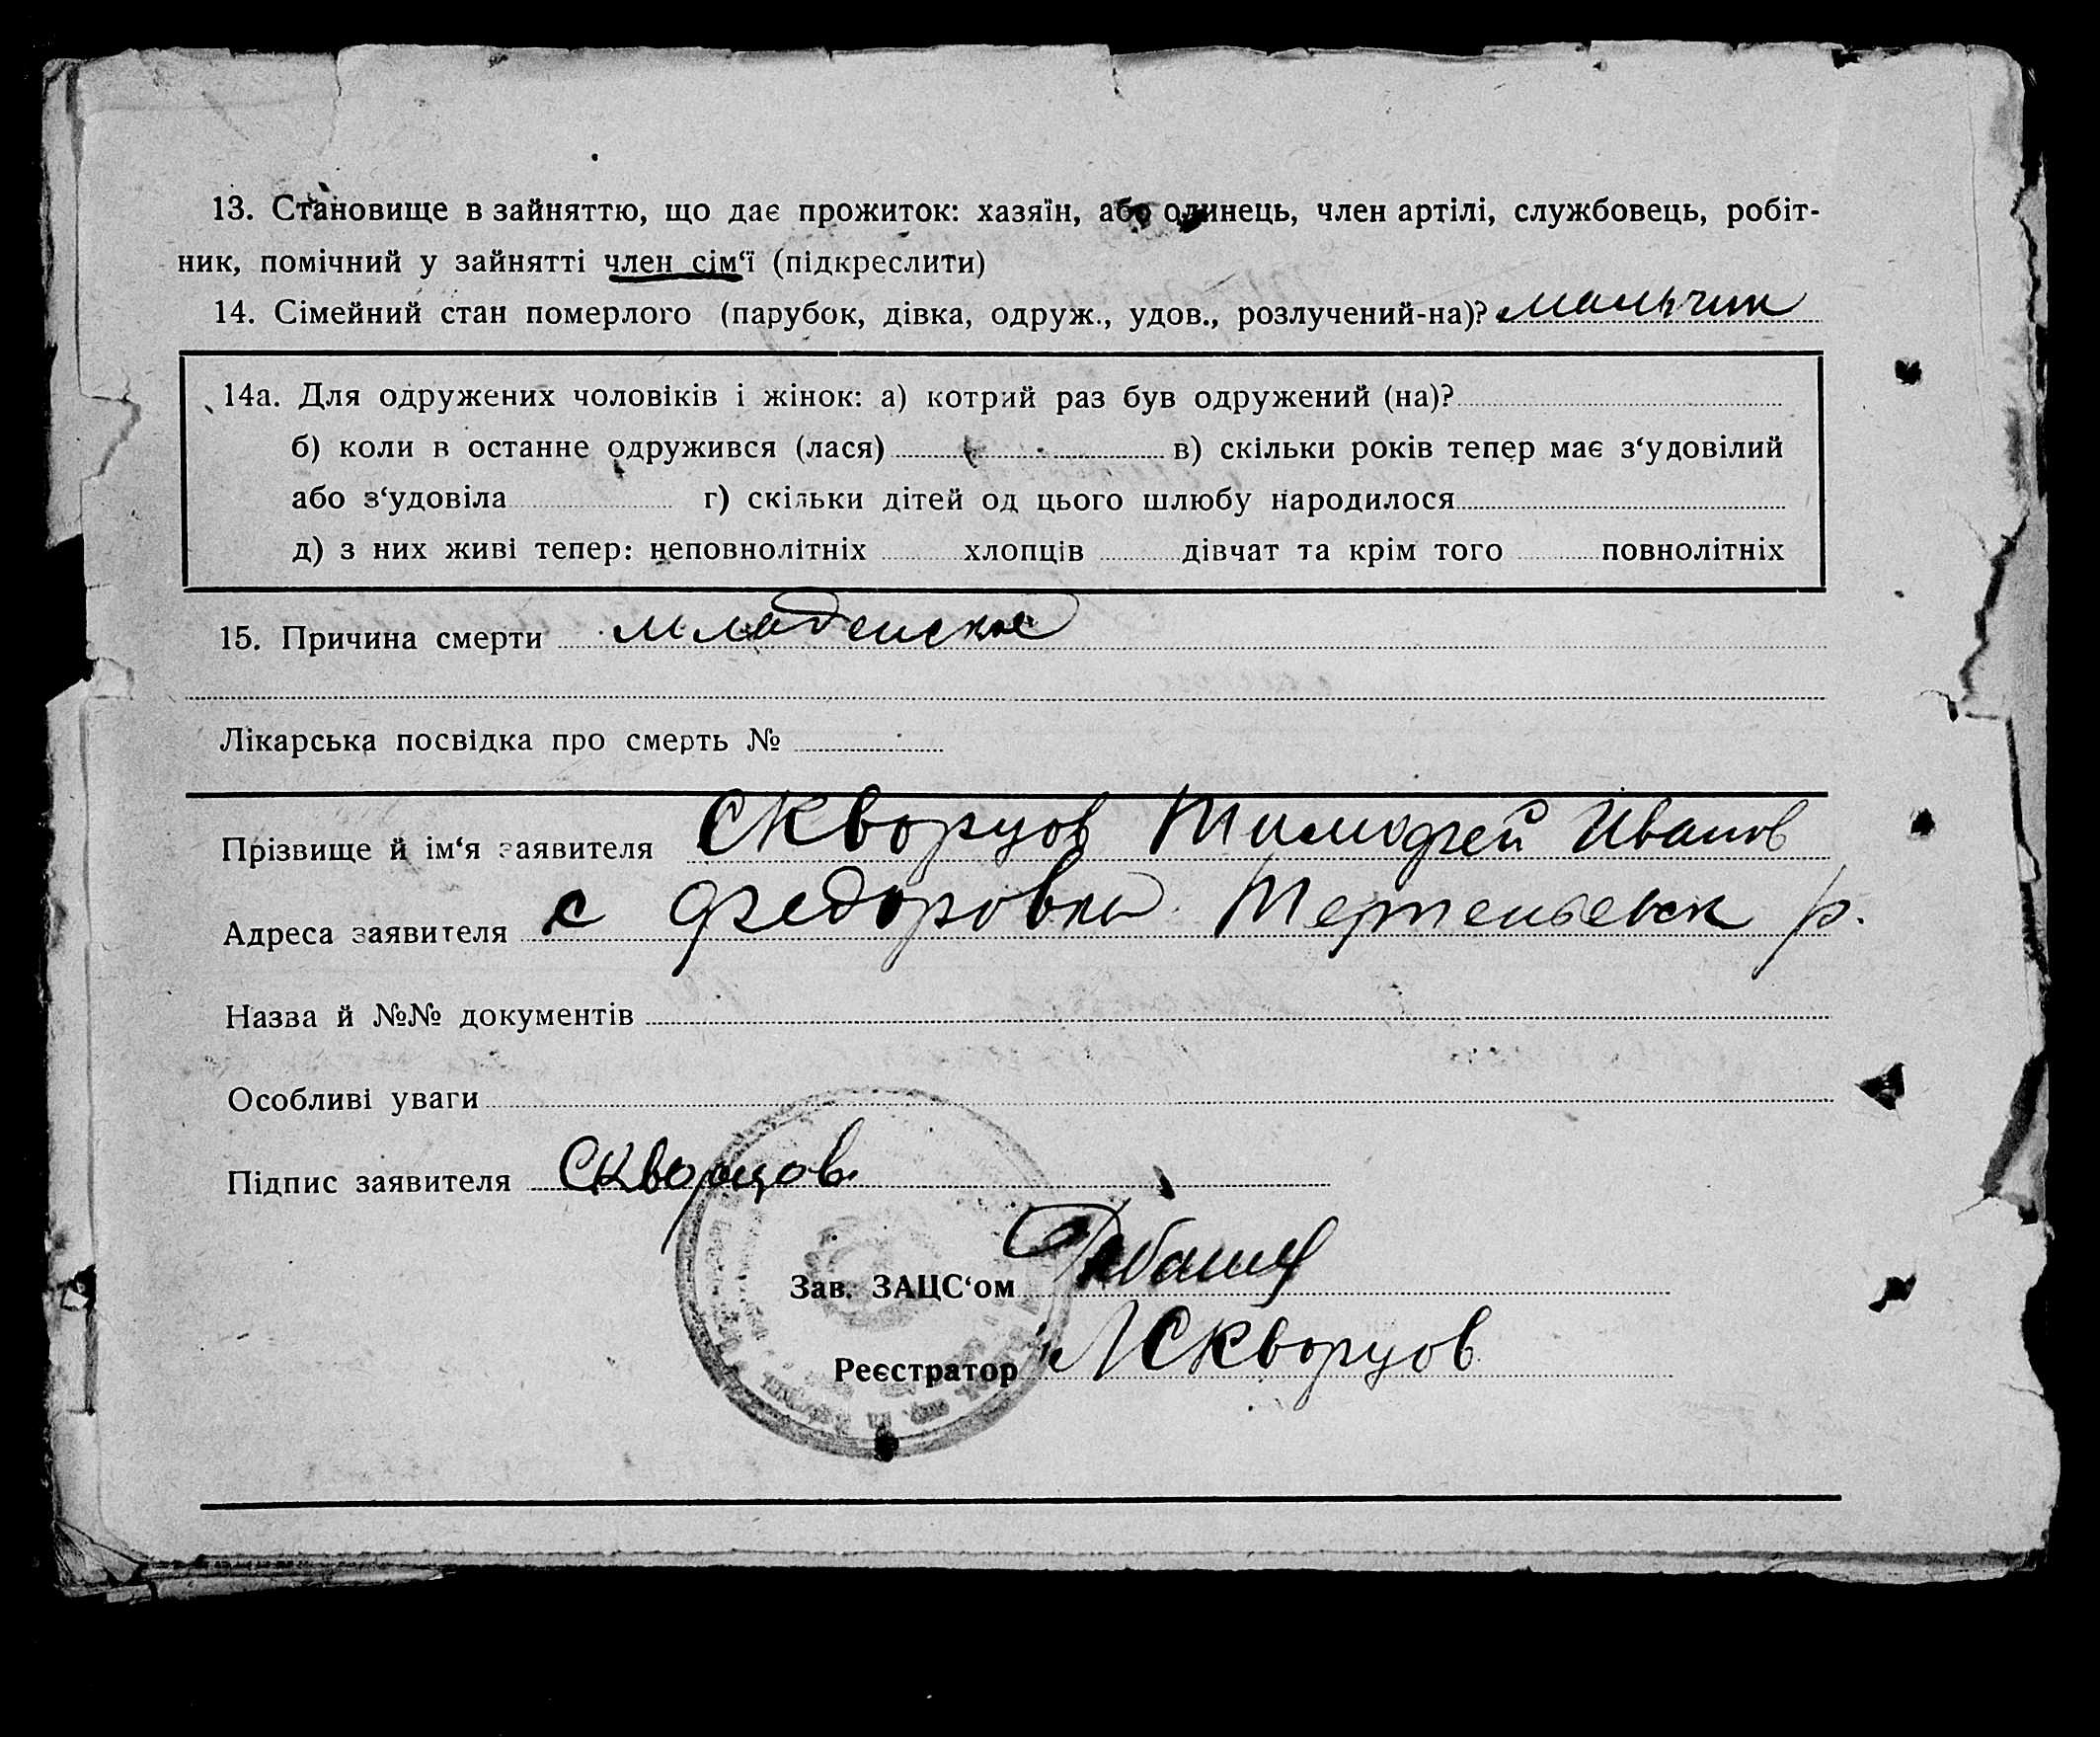 13. Становище в зайняттю, що дає прожиток: хазяїн, або одинець, член артілі, службовець, робіт-
ник, помічний у зайнятті член сім‘ї (підкреслити)
14. Сімейний стан померлого (парубок, дівка, одруж., удов., розлучений-на)? мальчик
14а. Для одружених чоловіків і жінок: а) котрий раз був одружений (на)?
б) коли в останне одружився (лася) в) скільки років тепер має з‘удовілий
або з‘удовіла г) скільки дітей од цього шлюбу народилося
д) з них живі тепер: неповнолітніх хлопців дівчат та крім того повнолітніх
15. Причина смерти младенская
Лікарська посвідка про смерть №
Прізвище й ім‘я заявителя Скворцов Тимофей Иванов
Адреса заявителя с Федоровка р.
Назва й №№ документів
Особливі уваги
Підпис заявителя Скворцов
Зав. ЗАЦС‘ом
Реєстратор Скворцов